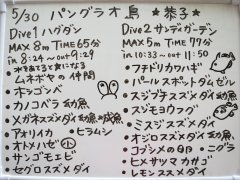 5/30 パングラオ島 ★恭子★
Dive1 ハグダン
MAX 8m TIME 65分
in 8:24 〜 out 9:29
ムネボヤの仲間
ホッゴンベ
カノコベラ 幼魚
メガネスズメダイ 幼魚・成魚
アオリイカ ・ヒラムシ
オトメハゼ 小
サンゴモエビ
セグロスズメダイ
Dive2 サンディガーデン
MAX 5m TIME 77分
in 10:33 〜 out 11:50
・フチドリカワハギ
・パールスポットダムゼル
・スジブチスズメダイ 幼魚
・スジモヨウフグ
・ミスジスズメダイ
・オジロスズメダイ 幼魚
・コブシメの卵 ・ニ
・ヒメサツマカサゴ
・レモンスズメダイ